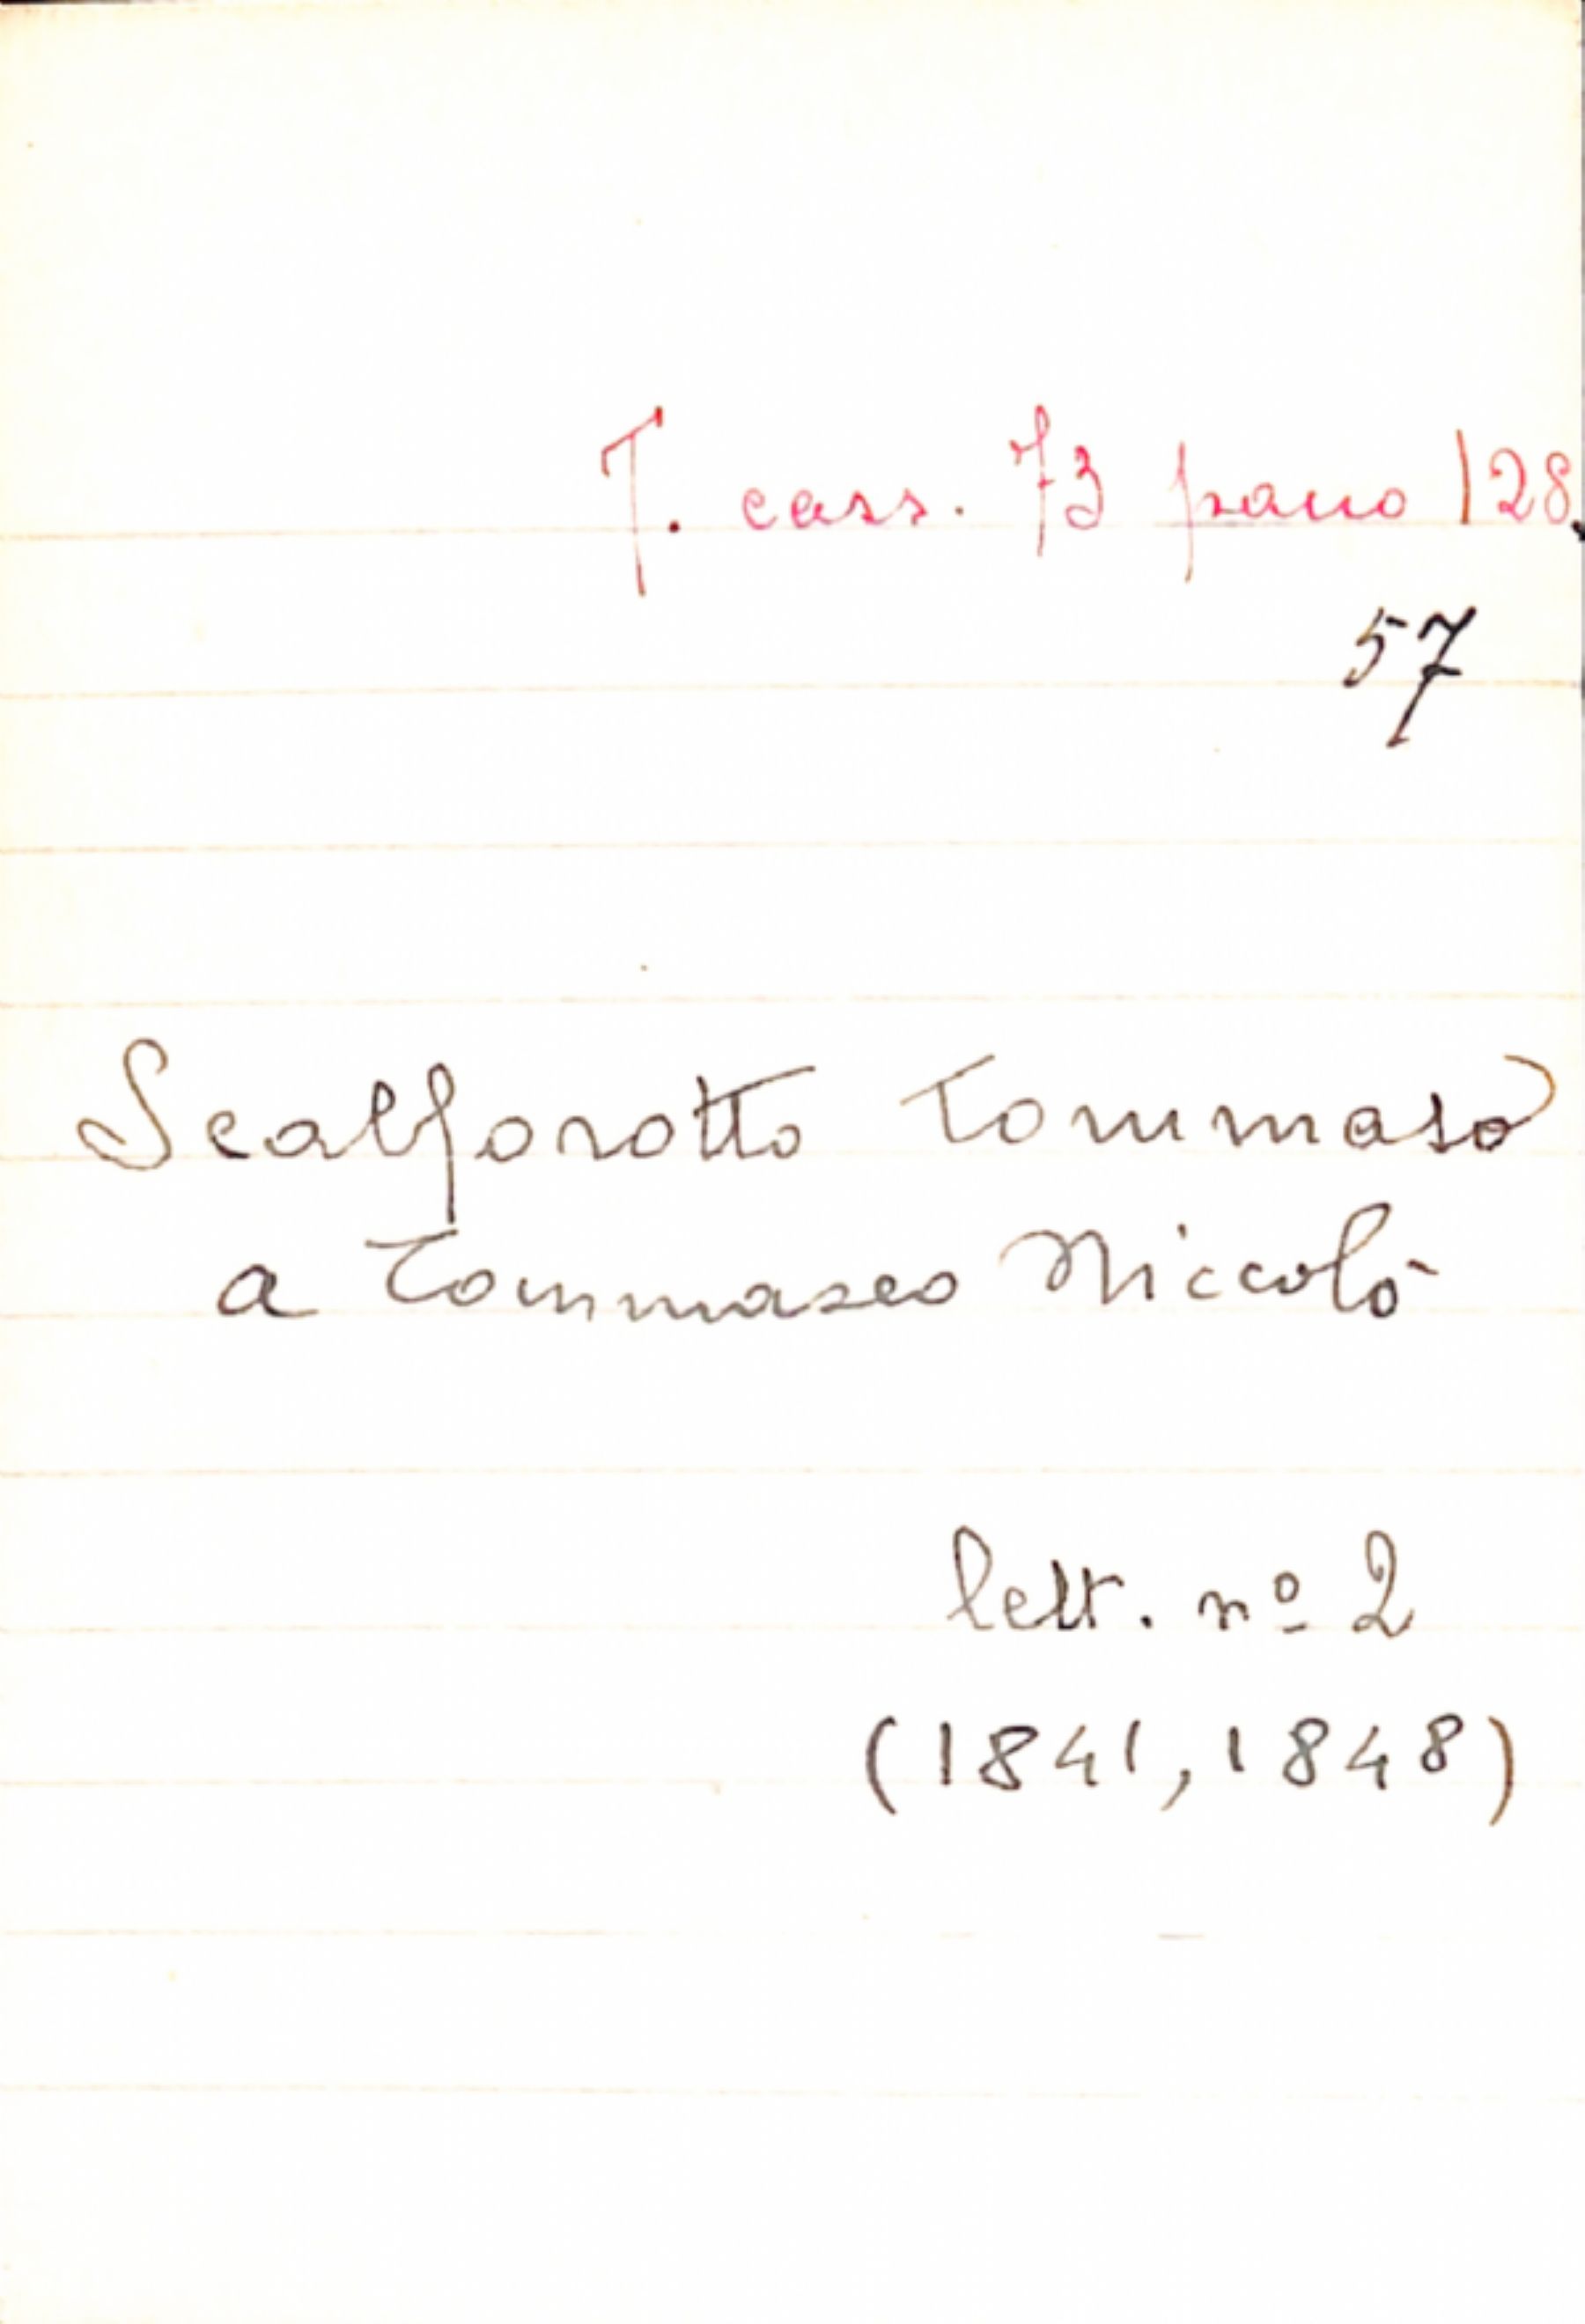 T. cass. 73 pano 128.
57
Scalforotto Tommaso
a Tommaseo Niccolò
lett. nº 2
(1841, 1848)